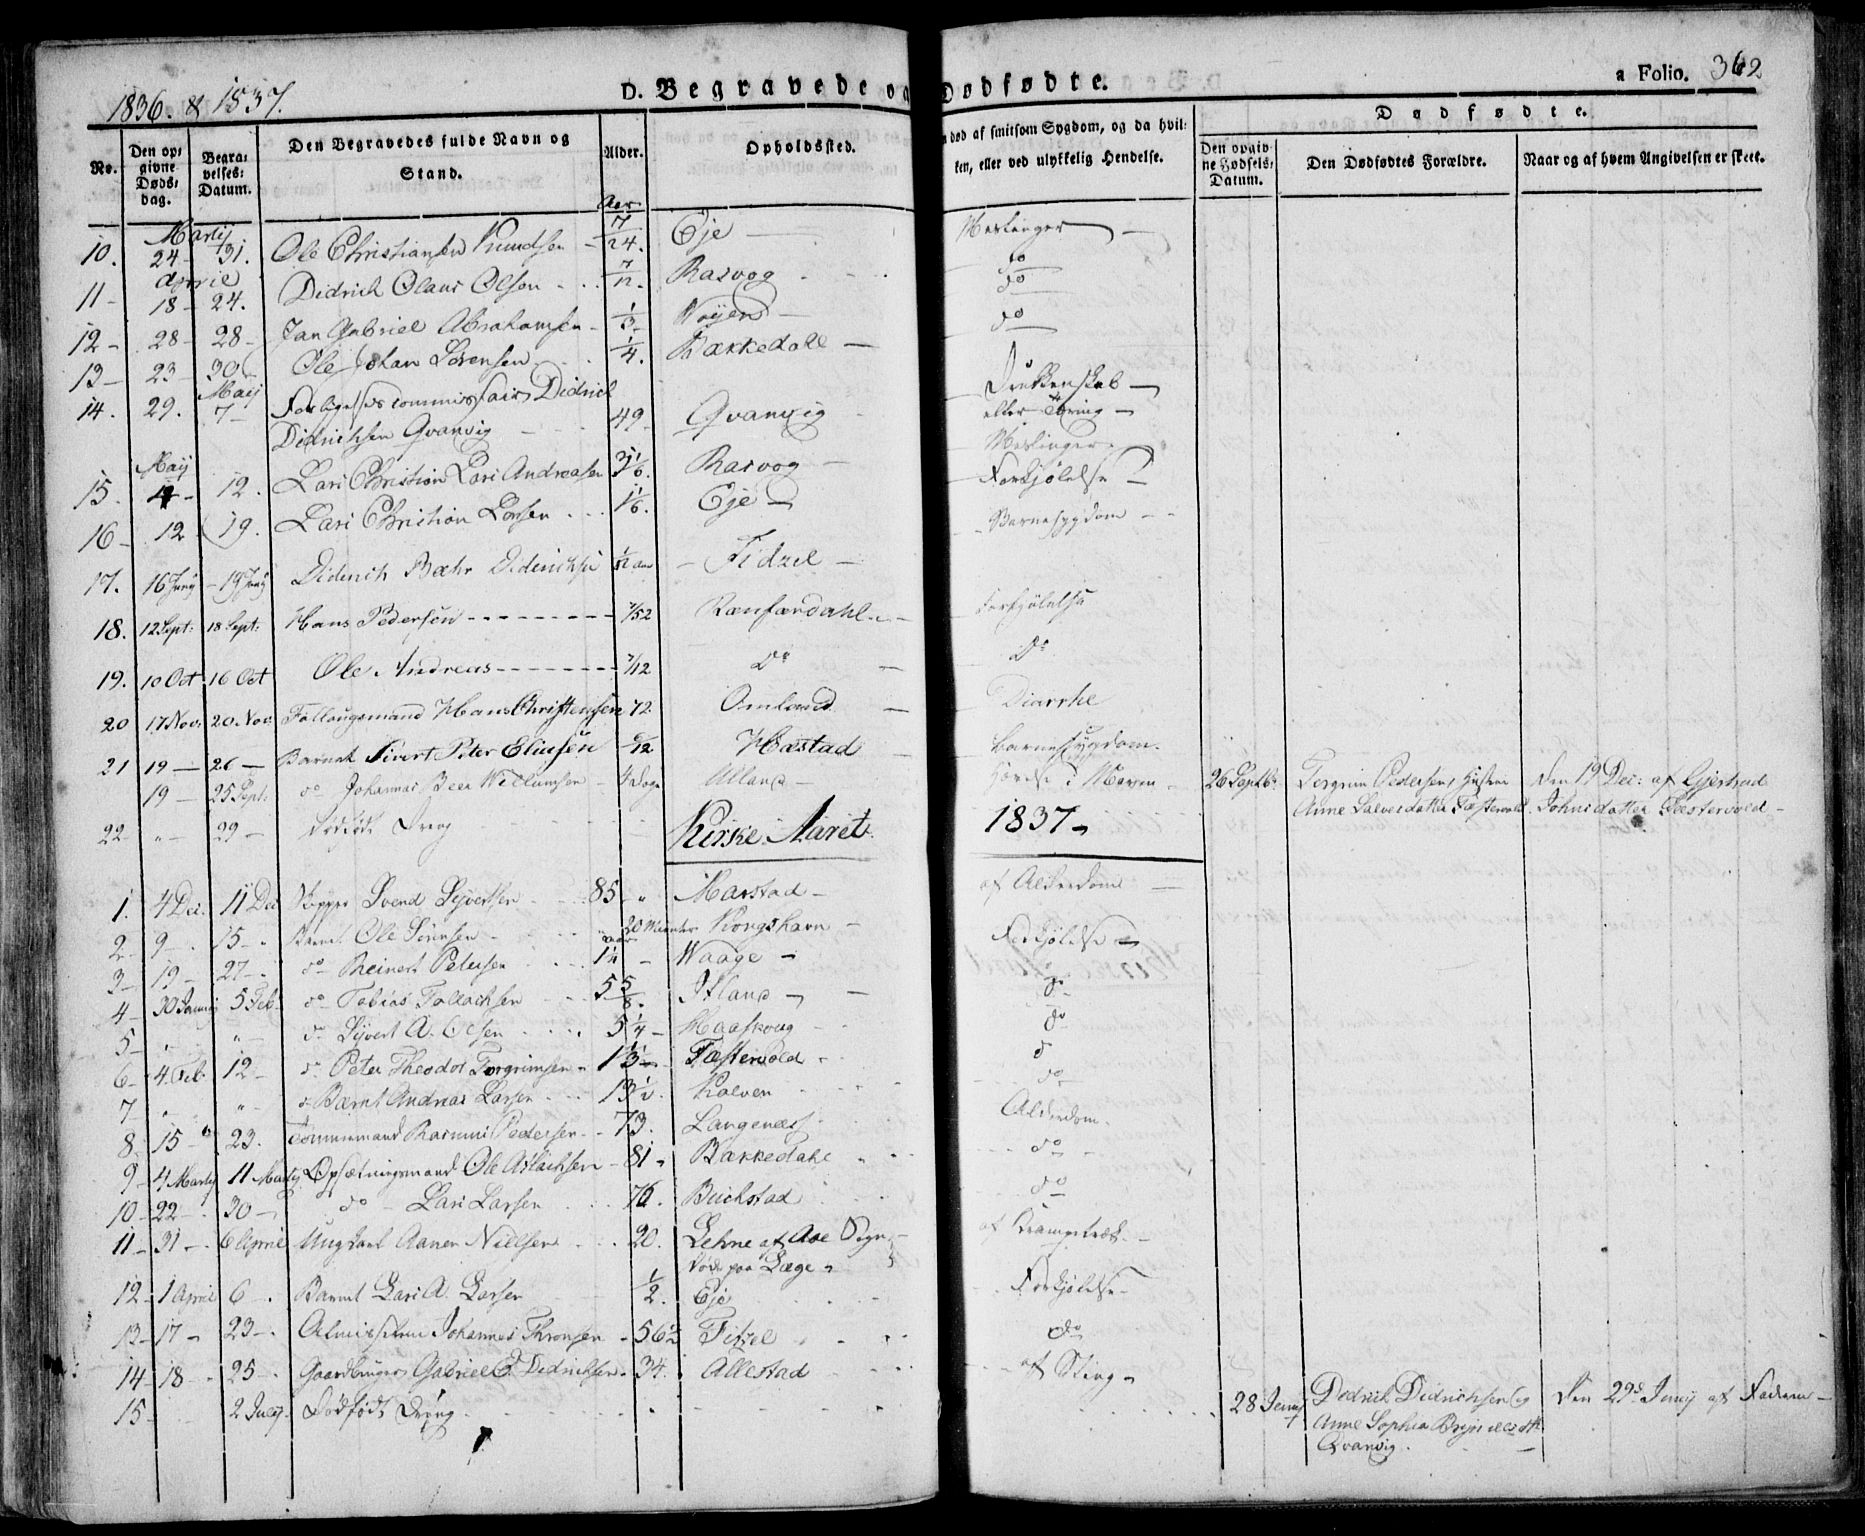 1836. & 1837.
D. Begravede og Dødfødte.
a Folio. 362
No.
Den op-
givne
Døds-
dag.
Begra-
velses-
Datum.
Den Begravedes fulde Navn og
Stand.
Alder.
Opholdssted.
død af smitsom Sygdom, og da hvil-
ken, eller ved ulykkelig Hendelse.
Dødfødte.
Den opgiv-
ne Fødsels-
Datum.
Den Dødfødtes Forældre.
Naar og af hvem Angivelsen er skeet.
Aar
Martij
10. 24- 31. Ole Christiansen Knudsen - 7/24. Eje Meslinger
April
11- 18- 24. Didrich Olaus Olsen 7/12. Rasvog do
12- 28- 28- Jan Gabriel Abrahamsen - 1/3- do
13- 23- 30 Ole Johan Sørensen 1/4. Bækkedahl
Maij
14. 29. 7- Forligelses commissair Didrich Drukkenskab
Didrichsen Qvanvig 49- Qvanvig eller Tæring
Maij Meslinger
15. 4- 12. Lars Christian Lars Andreasen Rasvog Forkjølelse
16- 12 19. Lars Christian Larsen 1/6. Eje - Barnesygdom
17. 16 Junij - 19 Junij Diderich Bæhr Diderichsen Fidzel -
18. 12 Sept: 18 Sept: Hans Pedersen 7/52 Rænfærdahl Forkjølelse
19. 10 Oct 16 Oct Ole Andreas 7/12 Do Do
20 17 Nov. 20 Nov. Føllaugsmand Hans Christensen 72 Omland Diarrhe
21 19 - 26 - Barnet Sivert Peter Eliasen /12 Hæstad Barnesygdom.
19 - 25 Sept: do Johannes Beer Willumsen - 4 Dage Alland - i Maven 26 Sept Torgrim Pedersens Hustru den 19 Dec: af Gjertrud
Anne Salvesdatter Fæstervold. Johnsdatter Fæstervold -
22 - 29 - Dødfødt Dreng
Kirke Aaret 1837
1. 4 Dec. 11 Dec Svend Syvertsen 85 Marstad - af Alderdom
2- 9- 15- Barnet Ole Sørensen 20 Minuter Kongshavn - Forkjølelse
3- 19- 27- do Reinert Petersen 14 Aar Waage - do
4- 30 Januarj 5 Feb. do Tobias Tollachsen 5 5/8. Itland do
5- do Syvert A. Olsen 5 1/4 - do
6- 4. Feb. 12- do Peter Theodor Torgrimsen 1 1/3 Fæstervold do
7- do Bærnt Andreas Larsen 13 1/2. Kalven do
8- 15- 23. Rasmus Pedersen 73. Langenæss Alderdom.
9- 4 Martij 11 Martij Opsætningsmand Ole Aslachsen - 81 Bækkedahl do
10- 22- 30- do - Lars Larsen 76. Buchstad do
11- 31- 6 April Ung Karl Aanen Nielsen 20. Lehne af Aae Sogn af Krampetræk.
død paa Læge
12- 1 April 6- Barnet Lars A. Larsen 1/2. Eje Forkjølelse
13- 17- 23- Almisselem Johannes Thronsen - 56 1/2 Fitzel do
14- 18- 25- Gaardbruger Gabriel Didrichsen 34. Allestad af Sting
15- 2 July. Dødfødt Dreng 28 Junij Dedrick Didrichsen og Den 29de Junij af Faderen -
Anne Sophia
Qvanvig.